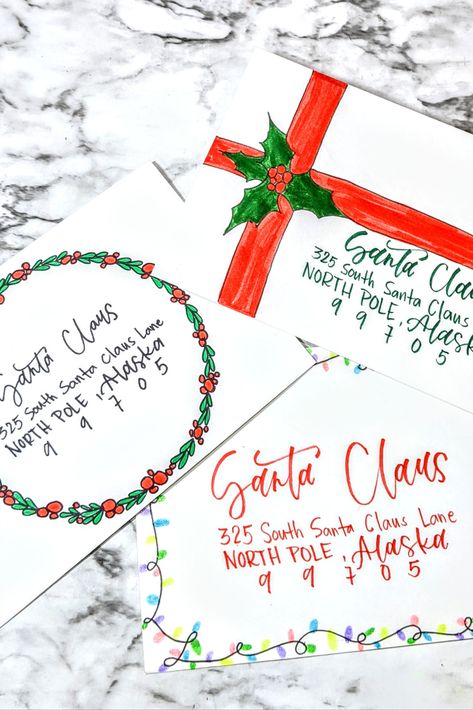 Santa Claus
325 South Santa Claus
NORTH POLE, Alaska
99705
Santa Claus
325 South Santa Claus Lane
NORTH POLE, Alaska
99705
Santa Claus
325 South Santa Claus Lane
NORTH POLE, Alaska
99705